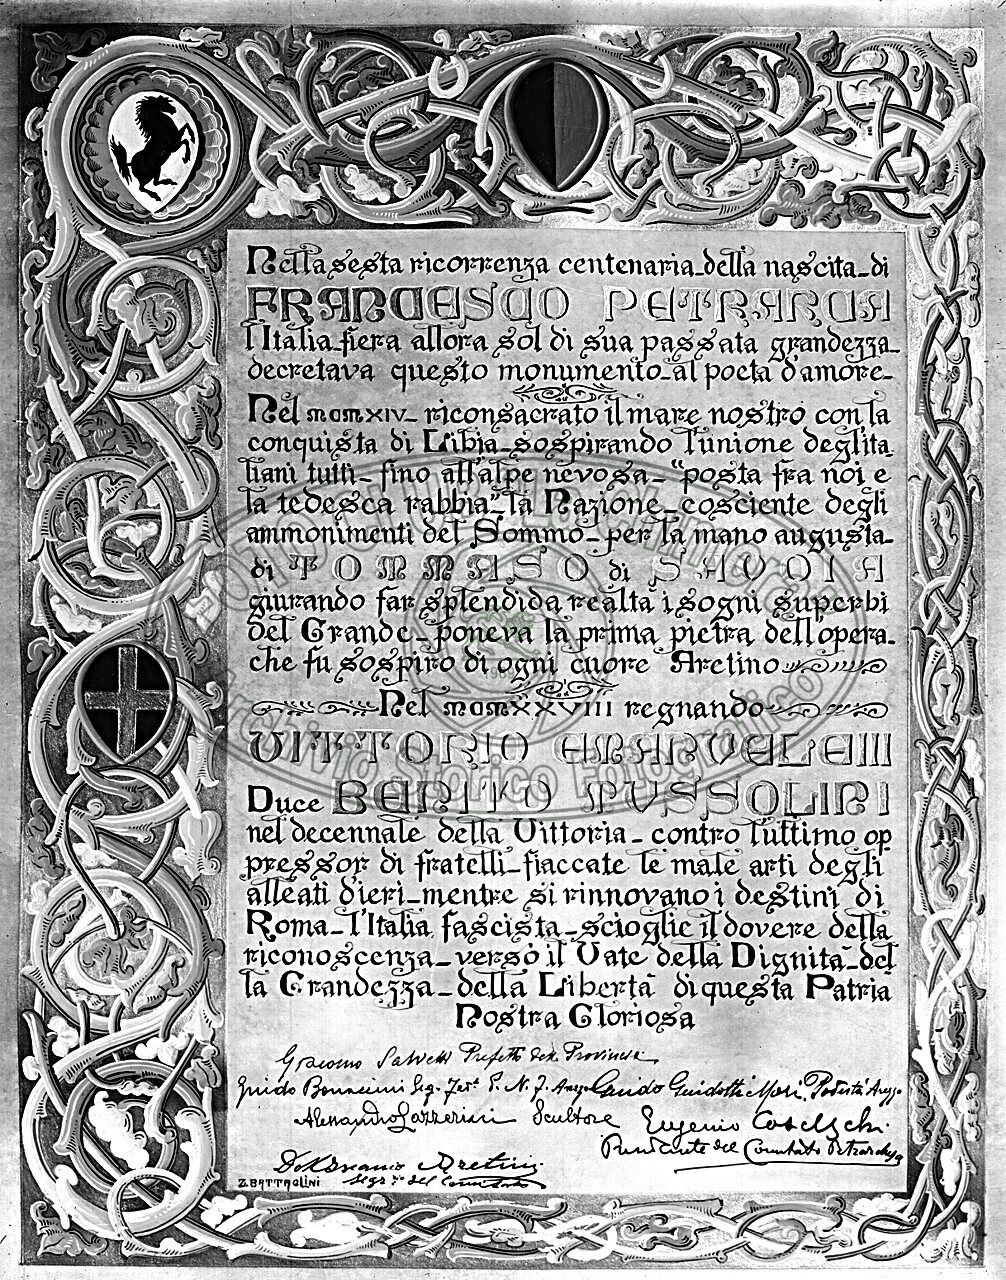 Nella sesta ricorrenza centenaria della nascita di
FRANCESCO PETRARCA
l'Italia fiera allora sol di sua passata grandezza
decretava questo monumento al poeta d'amore
Nel MCMXIV riconsacrato il mare nostro con la
conquista di Libia sospirando l'unione degl'ita
liani tutti fino all'alpe nevosa "posta fra noi e
la tedesca rabbia" la Nazione cosciente degli
ammonimenti del Sommo per la mano augusta
di TOMMASO di SAVOIA
giurando far splendida realtà i sogni superbi
del Grande poneva la prima pietra dell'opera
che fu sospiro di ogni cuore Aretino
Nel MCMXXVIII regnando
VITTORIO EMANUELE III
Duce BENITO MUSSOLINI
nel decennale della Vittoria contro l'ultimo op
pressor di fratelli fiaccate le male arti degli
alleati d'ieri mentre si rinnovano i destini di
Roma l'Italia fascista scioglie il dovere della
riconoscenza verso il Vate della Dignità del
la Grandezza della Libertà di questa Patria
Nostra Gloriosa
Giacomo Salvetti Prefetto della Provincia
Guido Bonaccini Seg. Fed. P. N. F. Arezzo Guido Guidotti Mori, Podestà Arezzo
Alessandro Lazzerini Scultore Eugenio Coselschi
Presidente del Comitato Petrarchesco
Segr. del Comitato
Z. BATTAGLINI
Archivio Storico Fotografico